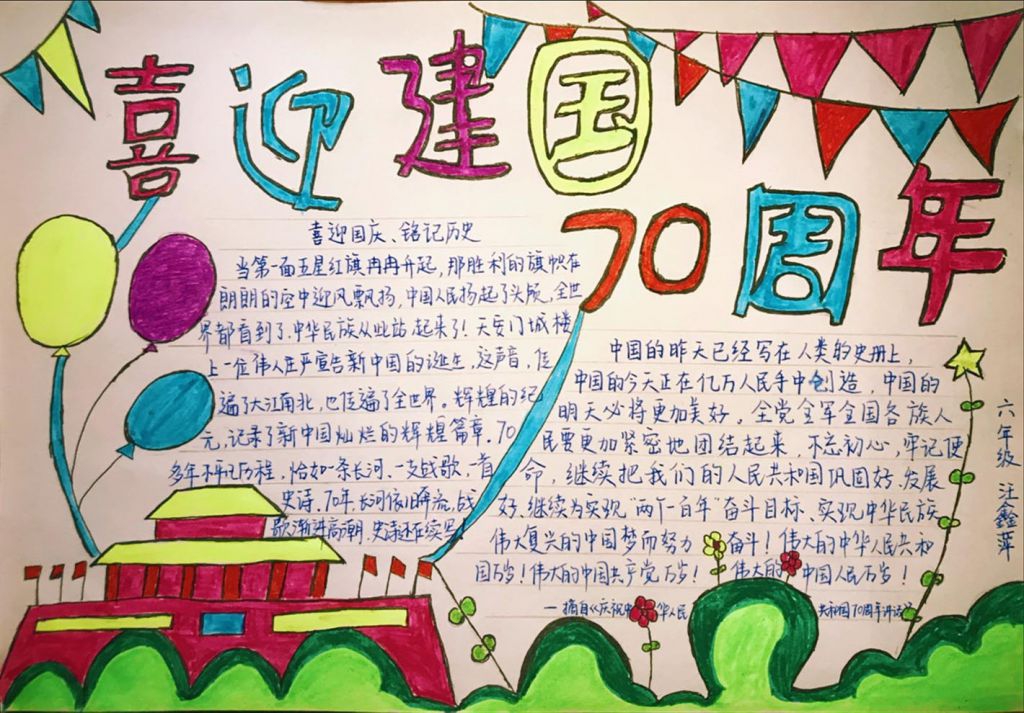 喜迎建国
70周年
喜迎国庆、铭记历史
当第一面五星红旗冉冉升起，那胜利的旗帜在
朗朗的空中迎风飘扬，中国人民扬起了头颅，全世
界都看到了，中华民族从此站起来了！天安门城楼
上一位伟人庄严宣告新中国的诞生，这声音，传
遍了大江南北，也传遍了全世界。辉煌的纪
元，记录了新中国灿烂的辉煌篇章。70
多年不平凡历程，恰如一条长河、一支战歌、一首
史诗。70年，长河依旧奔流，战
歌渐进高潮，史诗还在续写！
中国的昨天已经写在人类的史册上，
中国的今天正在亿万人民手中创造，中国的
明天必将更加美好。全党全军全国各族人
民要更加紧密地团结起来，不忘初心，牢记使
命，继续把我们的人民共和国巩固好、发展
好，继续为实现“两个一百年”奋斗目标、实现中华民族
伟大复兴的中国梦而努力奋斗！伟大的中华人民共和
国万岁！伟大的中国共产党万岁！伟大的中国人民万岁！
—摘自《庆祝中华人民共和国70周年讲话》
六年级 汪鑫萍